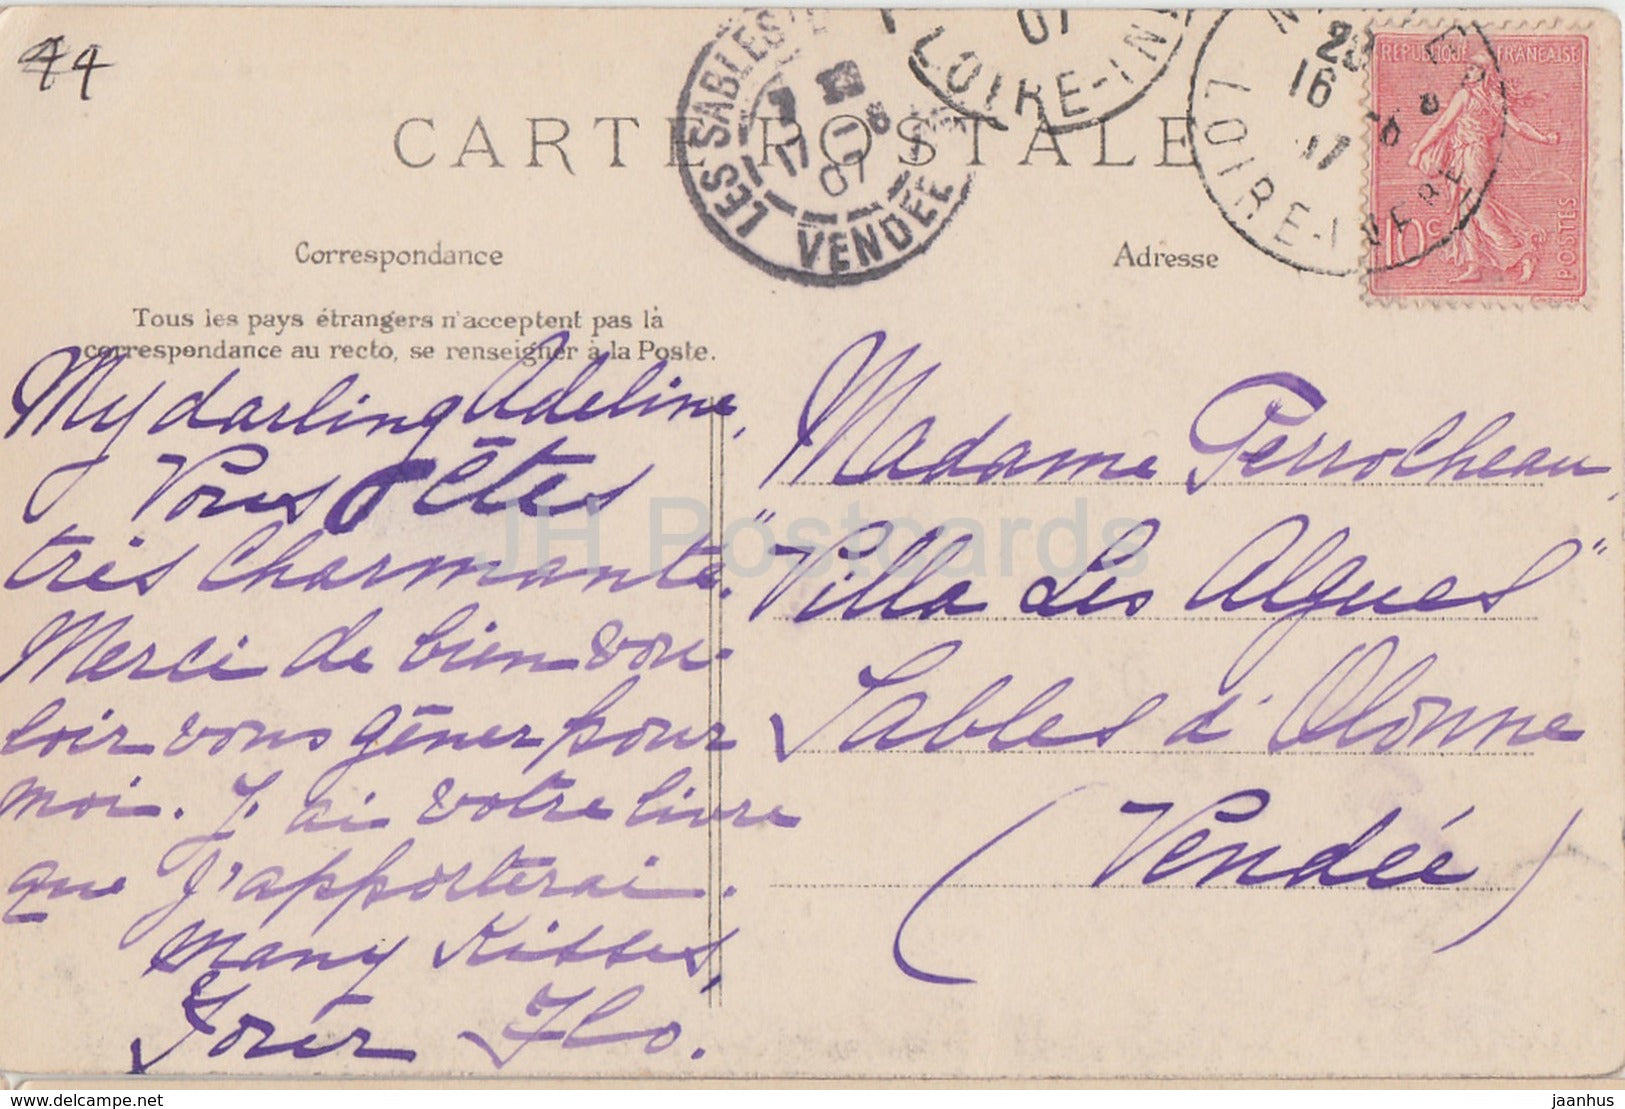 44
CARTE POSTALE
LES SABLES
17 -8
07
VENDÉE
LOIRE-IN
07
LOIRE-INFERE
16
REPUBLIQUE FRANÇAISE
10c
POSTES
Correspondance
Adresse
Tous les pays étrangers n'acceptent pas la
correspondance au recto, se renseigner à la Poste.
My darling Adeline,
Vous êtes
très charmante.
Merci de bien vou-
loir vous gêner pour
moi. J'ai votre livre
que j'apporterai.
Many Kisses,
Your Flo.
Madame Perrocheau,
"Villa Les Algues"
Sables d'Olonne
(Vendée)
JH Postcards
jaanhus
www.delcampe.net